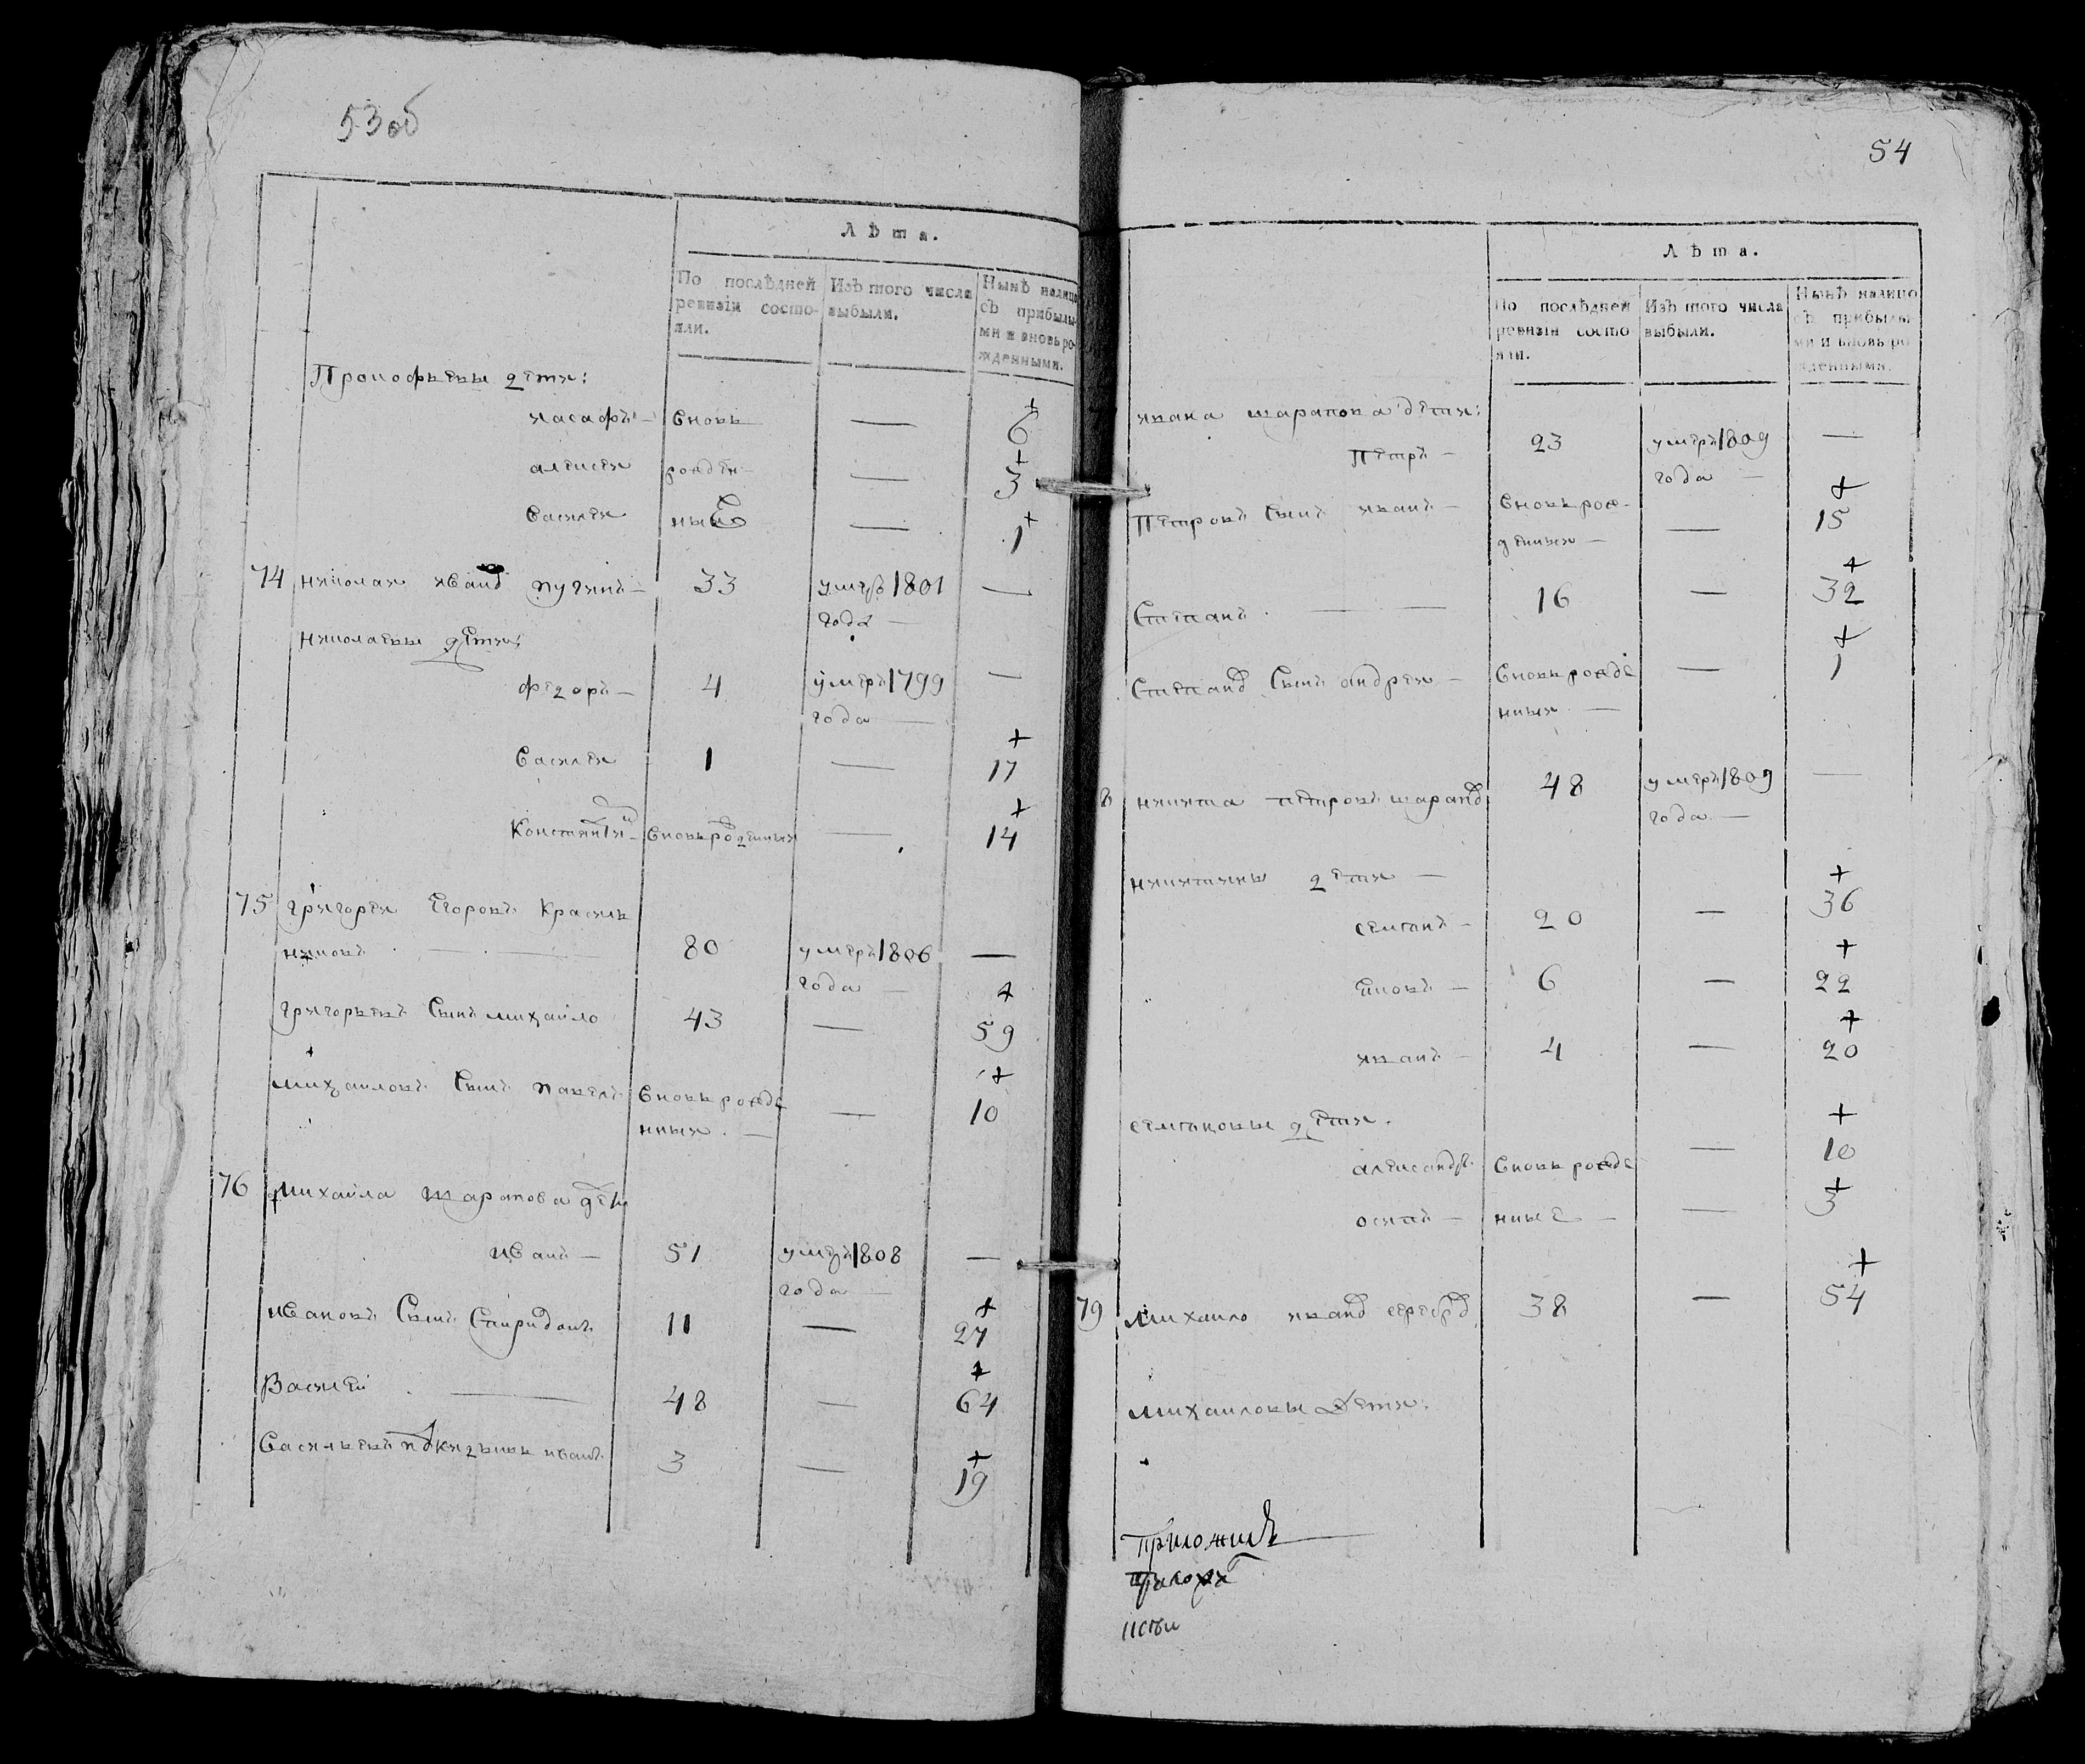 53 об
Лѣта.
По послѣдней ревизіи состо-яли.
Изъ того числа выбыли.
Нынѣ налицо съ прибылы-ми и вновь ро-жденными.
Прокофьевы дети:
Асафъ — вновь — 6
алексеи рожден- — 3
василеи ные — 1
74 николаи иванов пугинъ — 33 умеръ 1801 —
года —
николаевы дети:
федоръ — 4 умеръ 1799 —
года —
василеи 1 — 17
Константи — вновь рожденныи — 14
75 григореи Егоровъ Красиль
никовъ — 80 умеръ 1806 —
года —
григорьевъ сынъ михаило 43 — 59
михаиловъ сынъ павелъ вновь рожде — 10
нныи —
76 михаила шарапова дети
иванъ — 51 умеръ 1808 —
года —
ивановъ сынъ спиридонъ 11 — 27
Василеи — 48 — 64
васильевъ иванъ 3 — 19
54
Лѣта.
По послѣдней ревизіи состо-яли.
Изъ того числа выбыли.
Нынѣ налицо съ прибылы-ми и вновь ро-жденными.
ивана шарапова дети:
петръ — 23 умеръ 1809 —
года —
петровъ сынъ иванъ — вновь рож- — 15
денныи —
степанъ — 16 — 32
степанов сынъ андреи — вновь рожде — 1
нныи —
8 никита петровъ шарапов 48 умеръ 1809 —
года —
никитины дети —
семионъ — 20 — 36
6 — 22
иванъ — 4 — 20
семионовы дети.
александръ вновь рожде — 10
осипъ — нные — 3
79 михаило иванов 38 — 54
михаиловы дети:
приложилъ